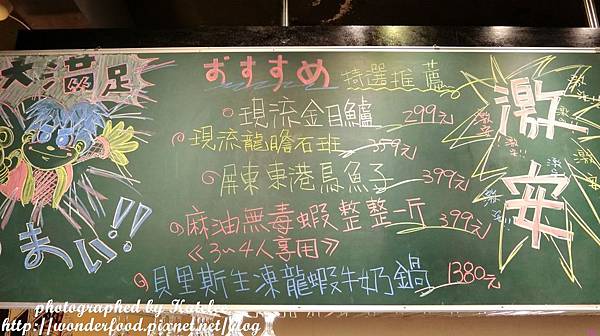 大滿足
おすすめ 特選推薦
現流金目鱸 299元
現流龍膽石班 359元
屏東東港烏魚子 399元
麻油無毒蝦整整一斤 399元
《3~4人享用》
貝里斯生凍龍蝦牛奶鍋 1380元
うまい!!
激安
photographed by Kutel
http://wonderfood.pixnet.net/blog